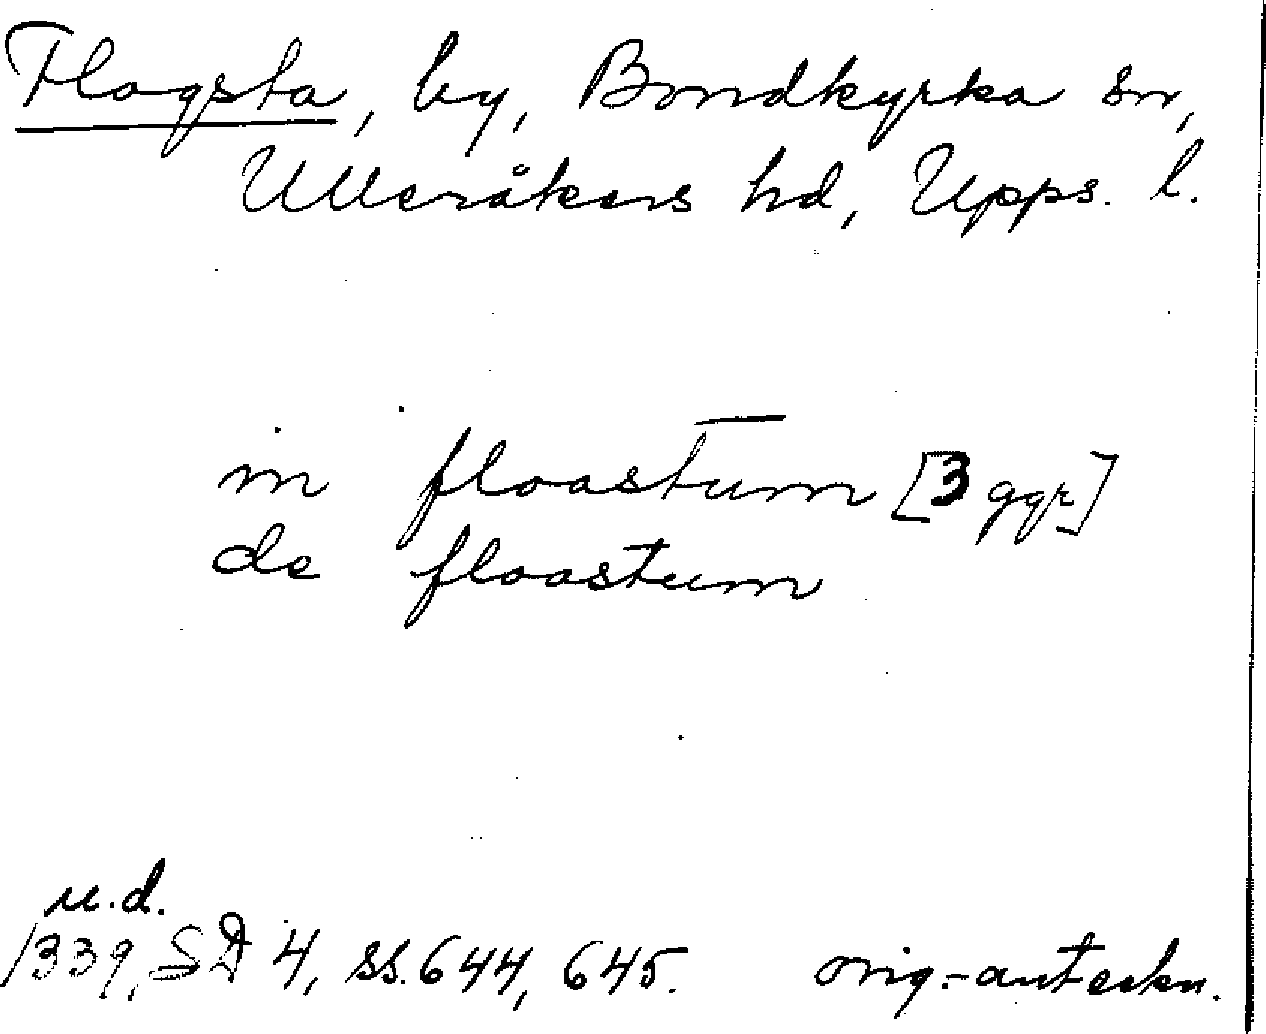 Flogsta, by, Bondkyrka sn,
Ulleråkers hd, Upps. l.
in floastum [3 ggr]
de floastum
u.d.
1339, SD 4, ss. 644, 645. orig.-anteckn.